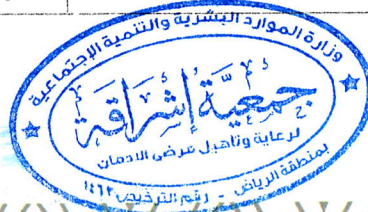 وزارة الموارد البشرية والتنمية الاجتماعية
جمعية إشراقة
لرعاية وتأهيل مرضى الادمان
بمنطقة الرياض - رقم الترخيص ١٤١٢